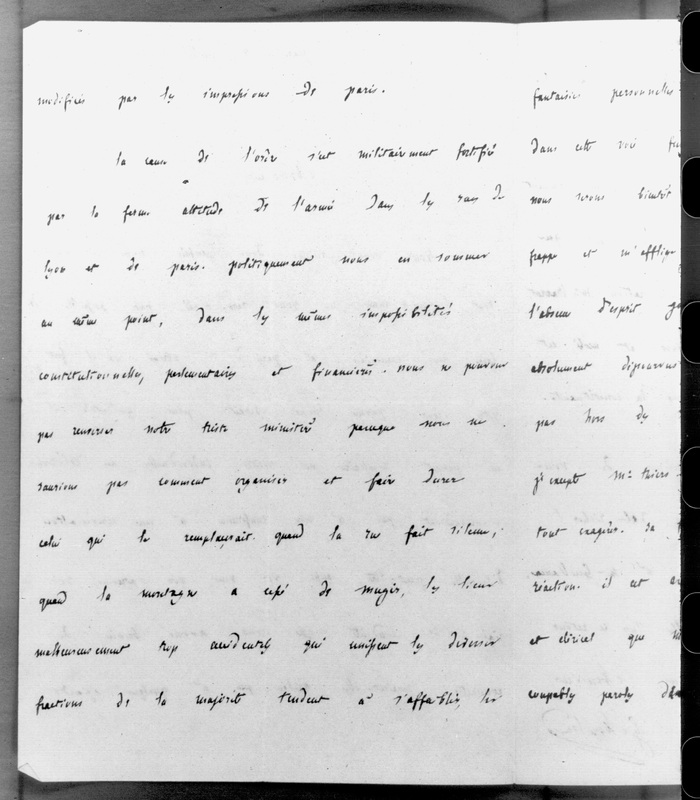 modifiées par les impressions de paris.
la cause de l'ordre s'est militairement fortifiée
par la ferme attitude de l'armée dans les rues de
lyon et de paris. politiquement nous en sommes
au même point, dans les mêmes impossibilités
constitutionnelles, parlementaires et financières. nous ne pouvons
pas renverser notre triste ministère parceque nous ne
saurions pas comment organiser et faire durer
celui qui le remplacerait. quand la rue fait silence,
quand la montagne a cessé de mugir, les liens
malheureusement trop accidentels qui unissent les diverses
fractions de la majorité tendent à s'affaiblir, les
fantaisies personnelles
dans cette voie
nous serons bientôt
frappe et m'afflige
l'absence d'esprit
absolument dépourvus
pas hors de
j'excepte Mr thiers
tout exagérée. sa
réaction. il est
et clérical que
coupables paroles